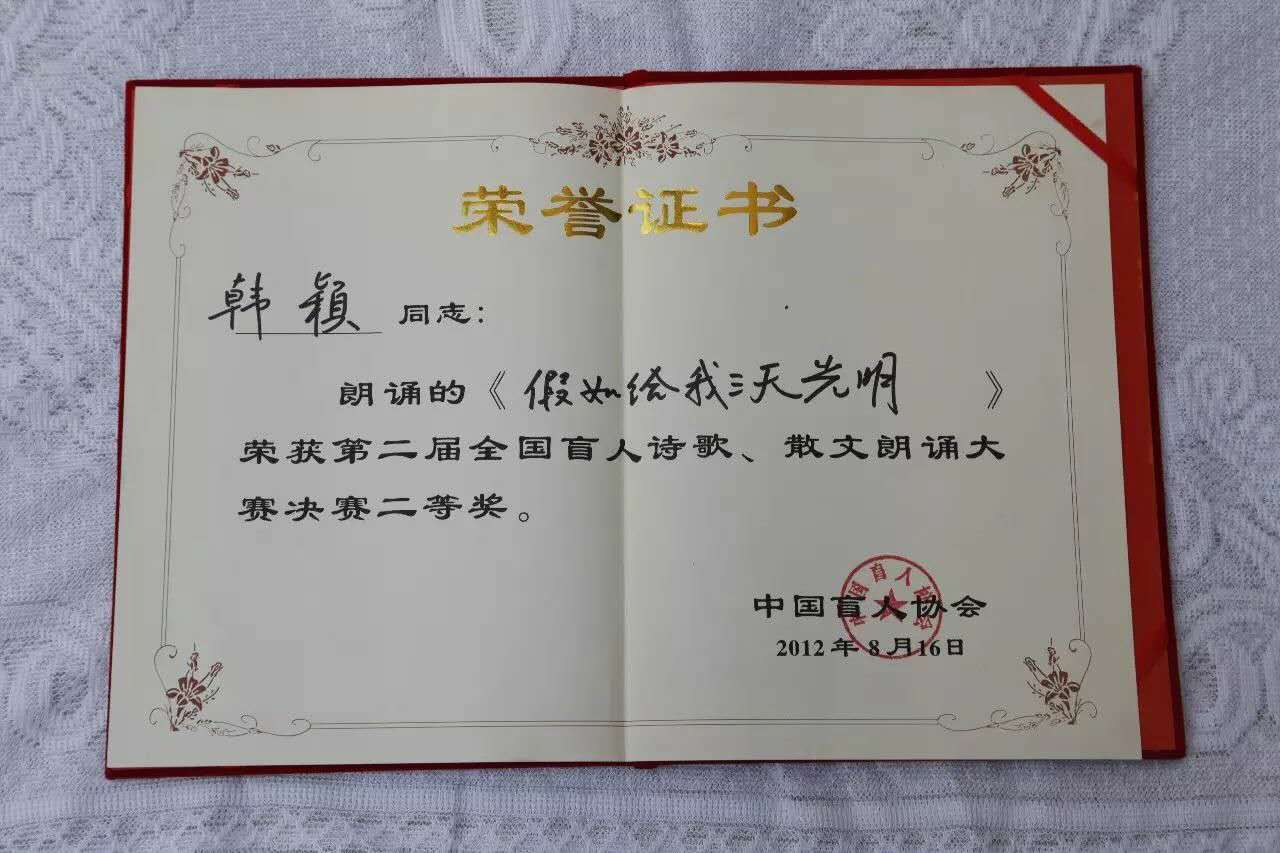 荣誉证书
韩颖 同志：
朗诵的《假如给我三天光明》
荣获第二届全国盲人诗歌、散文朗诵大
赛决赛二等奖。
中国盲人协会
2012年8月16日
中国盲人协会